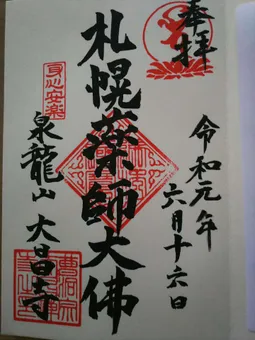 奉拝
令和元年
六月十六日
札幌薬師大佛
身心安楽
泉龍山 大昌寺